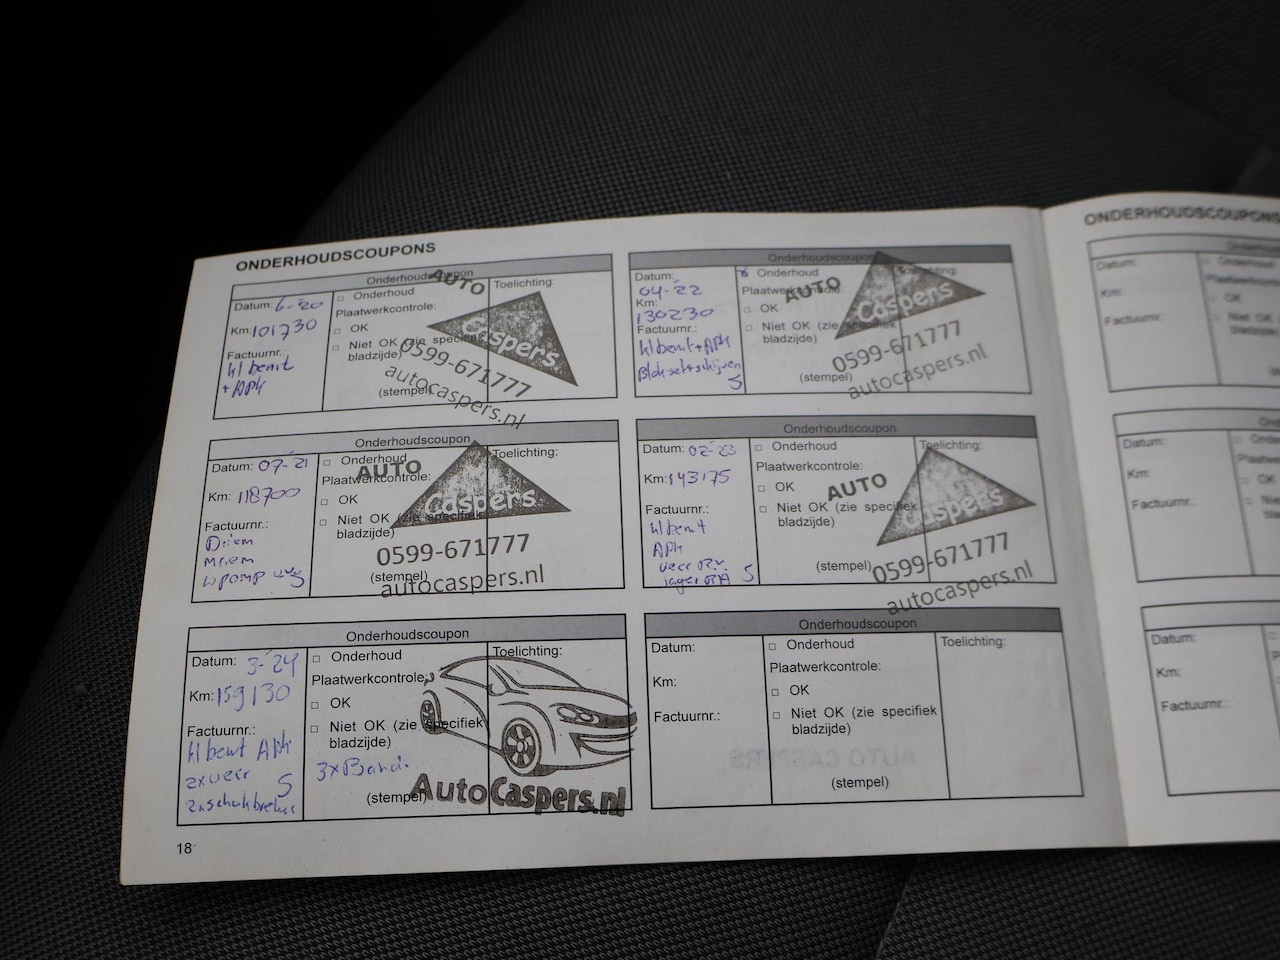 ONDERHOUDSCOUPONS
Onderhoudscoupon
Datum: 6-'20
Km: 101730
Factuurnr.:
kl beurt
+ APK
□ Onderhoud
Plaatwerkcontrole:
□ OK
□ Niet OK (zie specifiek
bladzijde)
(stempel)
Toelichting:
AUTO
Caspers
0599-671777
autocaspers.nl
Onderhoudscoupon
Datum: 04-'22
Km:
130230
Factuurnr.:
kl beurt + APK
Bloksets+schijven
S
□ Onderhoud
Plaatwerkcontrole
□ OK
□ Niet OK (zie specifiek
bladzijde)
(stempel)
Toelichting:
AUTO
Caspers
0599-671777
autocaspers.nl
Onderhoudscoupon
Datum: 07-'21
Km: 118700
Factuurnr.:
Driem
Mriem
wpomp
S
□ Onderhoud
Plaatwerkcontrole:
□ OK
□ Niet OK (zie specifiek
bladzijde)
(stempel)
Toelichting:
AUTO
Caspers
0599-671777
autocaspers.nl
Onderhoudscoupon
Datum: 02-'23
Km: 143175
Factuurnr.:
kl beurt
APK
veer
S
□ Onderhoud
Plaatwerkcontrole:
□ OK
□ Niet OK (zie specifiek
bladzijde)
(stempel)
Toelichting:
AUTO
Caspers
0599-671777
autocaspers.nl
Onderhoudscoupon
Datum: 3-'24
Km: 159130
Factuurnr.:
kl beurt APK
2x veer
S
2x schokbreker
□ Onderhoud
Plaatwerkcontrole:
□ OK
□ Niet OK (zie specifiek
bladzijde)
3x Band.
(stempel)
Toelichting:
AutoCaspers.nl
Onderhoudscoupon
Datum:
Km:
Factuurnr.:
□ Onderhoud
Plaatwerkcontrole:
□ OK
□ Niet OK (zie specifiek
bladzijde)
(stempel)
Toelichting:
18
ONDERHOUDSCOUPONS
Datum:
Km:
Factuurnr.:
Datum:
Km:
Factuurnr.:
Datum:
Km:
Factuurnr.: